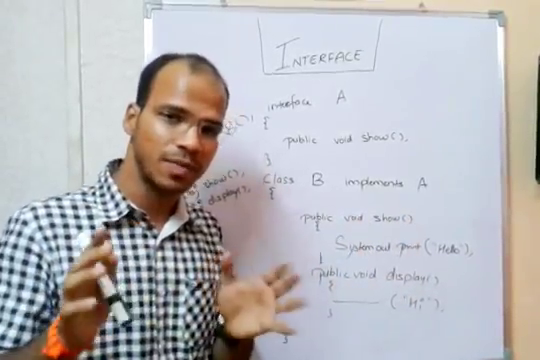 INTERFACE
interface A
{
public void show();
}
Class B implements A
{
show();
display();
public void show()
{
System out print ("Hello"),
}
public void display()
{
("Hi"),
}
}